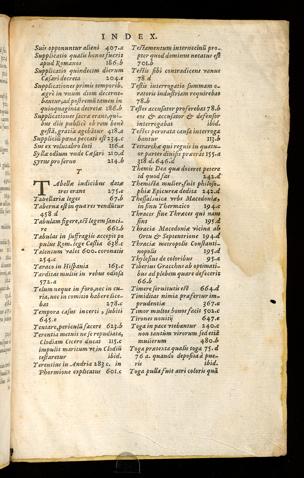 INDEX.
Suis opponuntur alieni 407.a
Supplicatio qualis honos fuerit
apud Romanos 186.b
Supplicatio quindecim dierum
Cæsari decreta 204.a
Supplicationes primis temporib.
agri in unum diem decerne-
bantur, ad postremū tamen in
quinquaginta decretæ 286.b
Supplicationes sacra erant, qui-
bus diis publicè ob rem benè
gestā, gratia agebātur 418.a
Supplicii pœna peccati est 234.c
Sus ex vulneratione luti 116.a
Syllæ odium vnde Cæsari 210.d
Syrus pro servo 214.b
T
Tabellæ iudicibus datæ
tres erant 275.c
Tabellaria leges 67.b
Taberna est in quo res venditur
458.d
Tabulam figere, est legem sanci-
re 662.b
Tabulas in suffragiis accepit po
pulus Rom. lege Cassia 638.c
Talentum valet 600. coronatis
254.c
Tarraco in Hispania 163.c
Tarditas multis in rebus odiosa
572.a
Telum neque in foro, nec in cu-
ria, nec in comitiis habere lice-
bat 278.c
Tempora casus incerti, subiti
645.c
Tentare, periculū facere 623.b
Terentia metuit ne se repudiata,
Clodiam Cicero ducat 115.c
impulit maritum ut in Clodiū
testaretur ibid.
Terentius in Andria 283.c. in
Phormione explicatus 601.c
Testamentum internecinū pro-
prer quod dominus necatus est
701.b
Testis sibi contradicens vanus
78.d
Testis interrogatio summam o-
ratoris industriam requirebat
78.b
Testes accusator proferebat 78.b
ens & accusator & defensor
interrogabat ibid.
Testes peroratâ causâ interroga
bantur 113.b
Tetrarcha qui regnis in quatu-
or partes divisis præerat 155.a
318.d. 646.d
Themis Dea quæ doceret petere
id quod fas 242.d
Themista mulier, fuit philoso-
phiæ Epicureæ dedita 242.d
Thessalonica urbs Macedoniæ,
in sinu Thermaico 194.c
Thraces siue Thraces qui nam
sint 195.d
Thracia Macedoniæ vicina ab
Ortu & Septentrione 194.d
Thracia metropolis Constanti-
nopolis 195.d
Thylesinus de coloribus 95.a
Tiberius Gracchus ab optimati-
bus ad plebem quare defecerit
66.b
Timere servitutis est 664.d
Timiditas nimia præfertur im-
prudentiæ 367.a
Timor multos bonos facit 502.c
Tirones nouitii 647.e
Toga in pace vtebantur 240.c
non tantùm virorum sed etiā
mulierum 480.b
Toga prætexta qualis toga 75.d
76.a. quando deposita à pue-
ris ibid.
Toga pulla fuit atri coloris quā